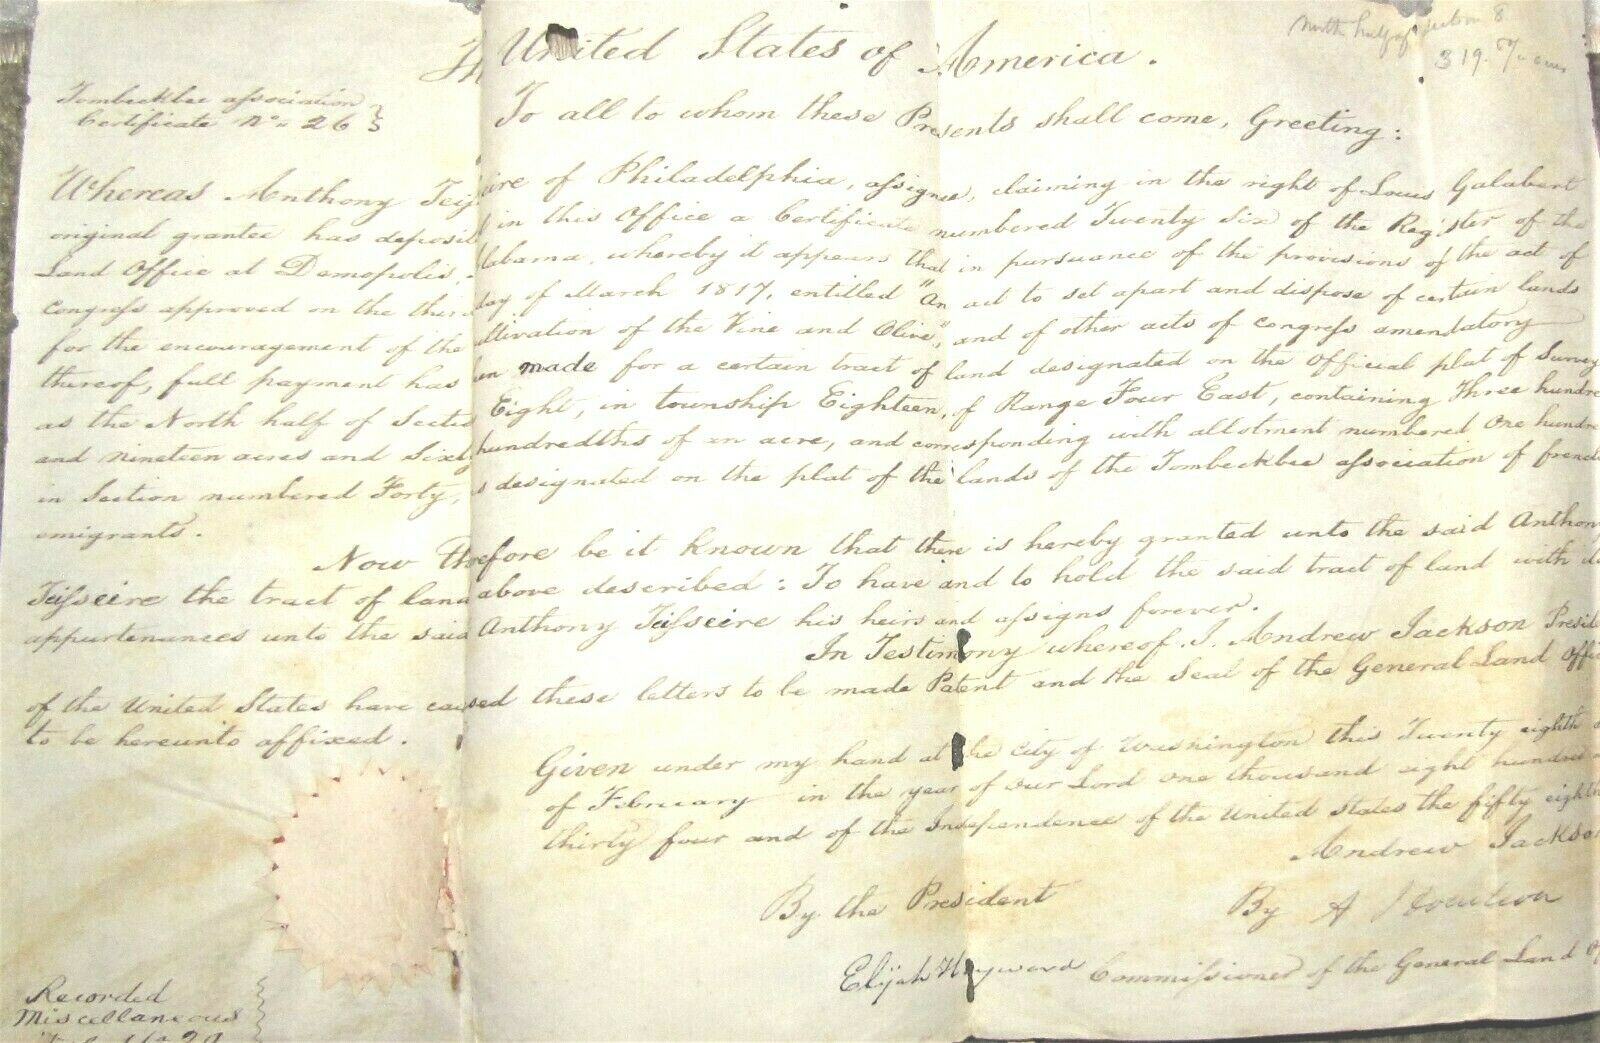 North half of Section 8
319.
Th United States of America.
Tombeckbee association
Certificate No. 26
To all to whom these Presents shall come, Greeting:
Whereas Anthony Teisseire of Philadelphia, assignee, claiming in the right of Louis Galabert
original grantee has deposited in this Office a Certificate numbered Twenty Six of the Register of the
Land Office at Demopolis, labama, whereby it appears that in pursuance of the provisions of the act of
Congress approved on the third day of March 1817, entitled "An act to set apart and dispose of certain lands
for the encouragement of the ultivation of the Vine and Olive", and of other acts of Congress amendatory
thereof, full payment has en made for a certain tract of land designated on the Official plat of Survey
as the North half of Sectio Eight, in township Eighteen, of Range Four East, containing Three hundre
and nineteen acres and Sixty hundredths of an acre, and corresponding with allotment numbered One hundre
in Section numbered Forty, s designated on the plat of the lands of the Tombeckbee association of french
emigrants.
Now Therefore be it known that there is hereby granted unto the said Anthony
Teisseire the tract of land above described: To have and to hold the said tract of land with
appurtenances unto the said Anthony Teisseire his heirs and assigns forever.
In Testimony whereof I, Andrew Jackson Presid
of the United States have caused these letters to be made Patent and the Seal of the General Land Offi
to be hereunto affixed.
Given under my hand at the City of Washington this Twenty eighth
of February in the year of our Lord one thousand eight hundred
thirty four and of the Independence of the United States the fifty eighth
Andrew Jackson
By the President
By A J Donelson
Elijah Hayward Commissioner of the General Land Of
Recorded
Miscellaneous